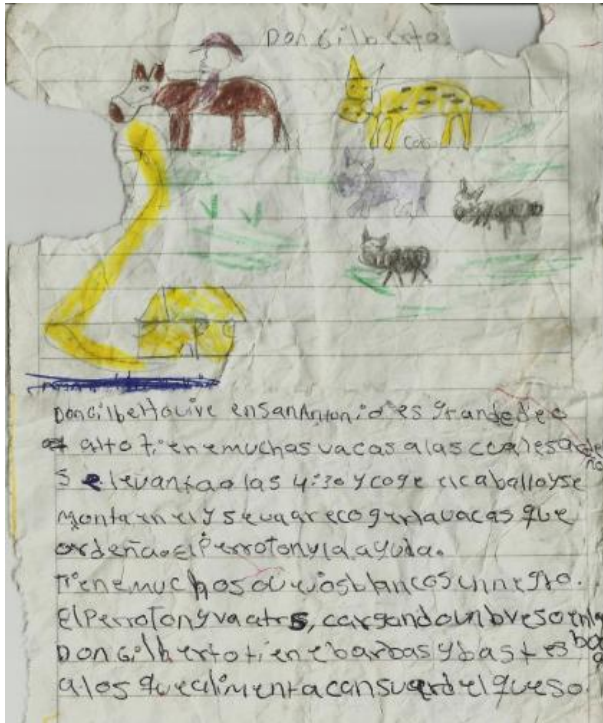 Don Gilberto
Don Gilberto vive en San Antonio es grande de
alto tiene muchas vacas a las cuales ordeña
Se levanta a las 4:30 y coge el caballo y se
monta en el y se va a recoger la vacas que
ordeña. El Perro Tony la ayuda.
tiene muchos ovejos blancos un negro.
El Perro Tony va atrs, cargando un bveso en la
Don Gilberto tiene barbas y bastes
a los que alimenta can suerdel queso